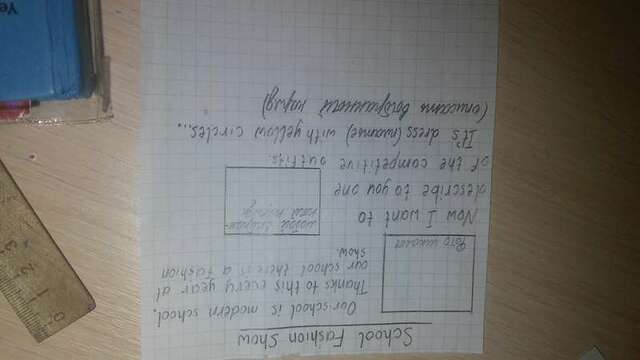 School Fashion Show
Our school is modern school.
Thanks to this every year at
our school there is a fashion
show.
Фото школы
Now I want to
describe to you one
of the competitive outfits.
It's dress (платье) with yellow circles...
(описать выбранный наряд)
Ye
0
1
2
3